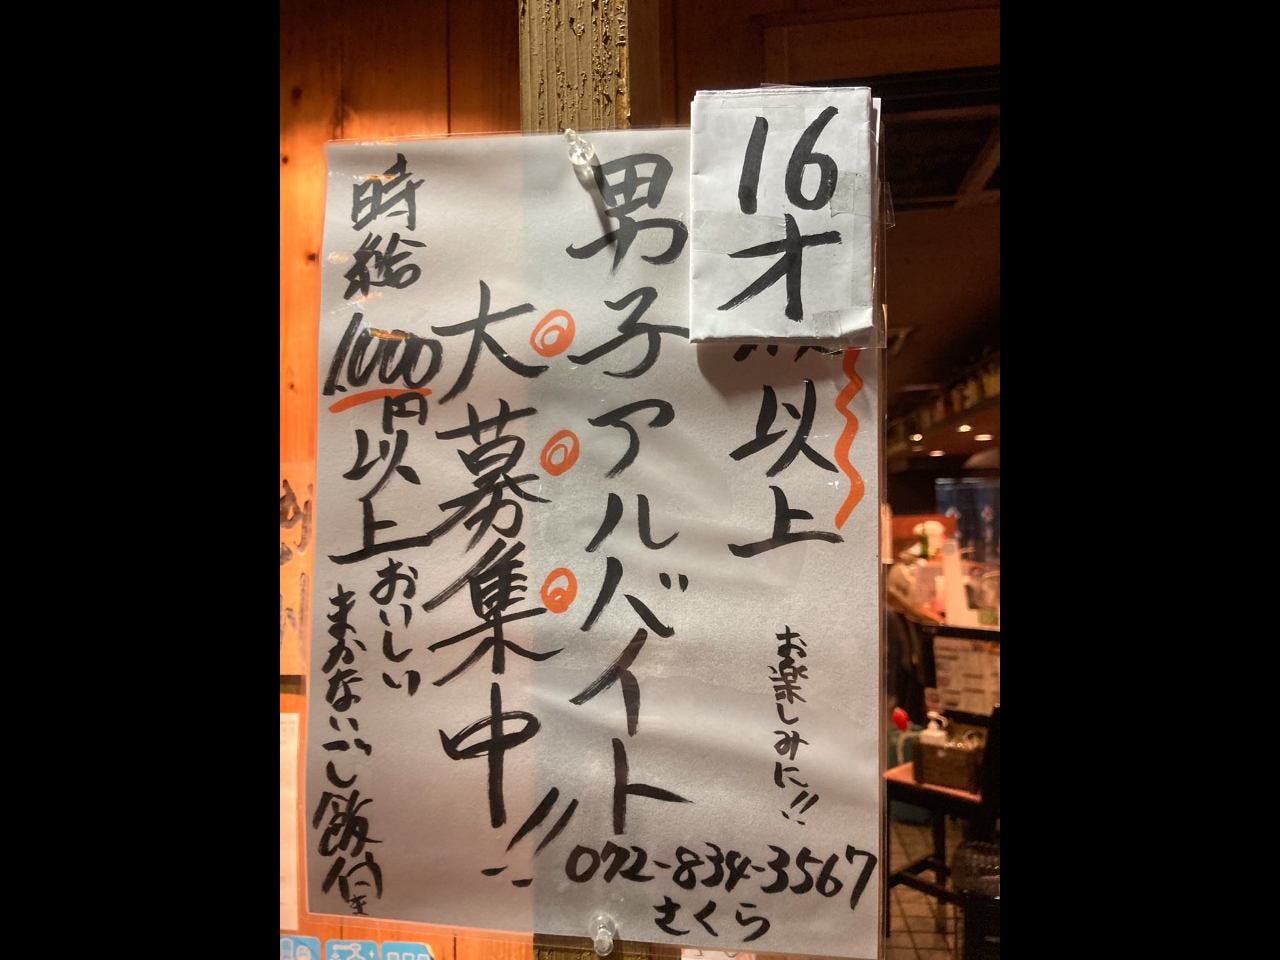 16才
以上
男子アルバイト
大募集中!!
時給1,000円以上
おいしい
まかないごし飯付き
お楽しみに!!
072-834-3567
さくら